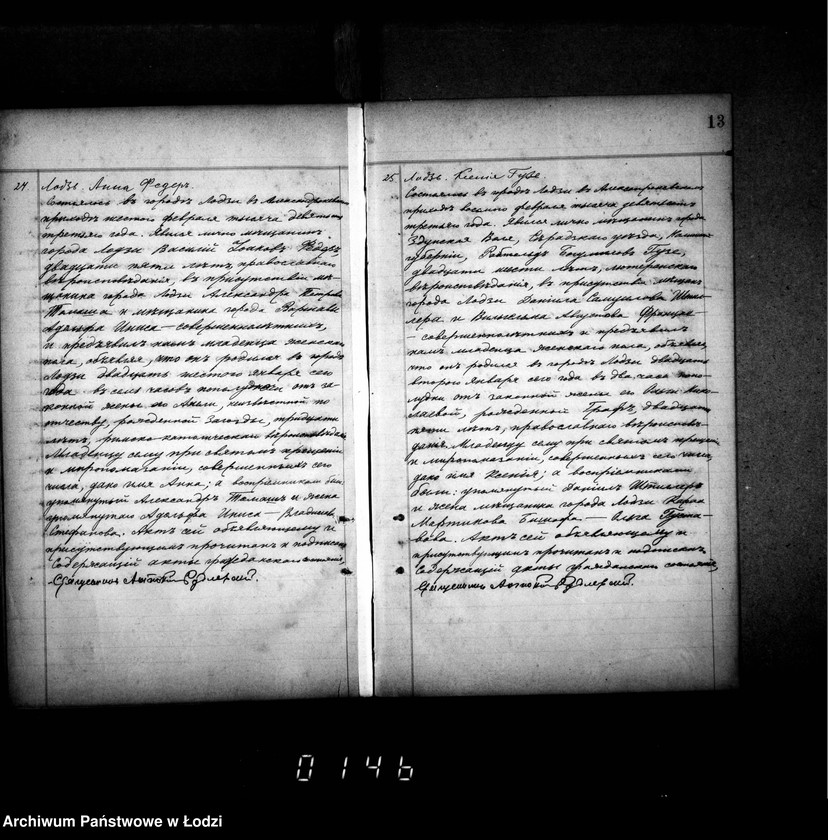 13
24. Лодзь. Анна Федеръ.
Состоялось въ городѣ Лодзи въ Александровскомъ
приходѣ шестого февраля тысяча девятьсотъ
третьяго года. Явился лично мѣщанинъ
города Лодзи Василій
двадцати пяти лѣтъ, православнаго
вѣроисповѣданія, въ присутствіи мѣ-
щанина города Лодзи Александра Петрова
Томаша и мѣщанина города Варшавы
Адольфа Иниса — совершеннолѣтнихъ,
и предъявилъ намъ младенца женскаго
пола, объявляя, что онъ родился въ городѣ
Лодзи двадцать шестого января сего
года въ семь часовъ пополудни отъ за-
конной жены его Анели, неизвѣстной по
отчеству, рожденной тридцати
лѣтъ, римско-католическаго вѣроисповѣданія.
Младенцу сему при святомъ крещеніи
и миропомазаніи, совершенныхъ сего
числа, дано имя Анна; а воспріемниками были:
упомянутый Александръ Томашъ и жена
упомянутаго Адольфа Иниса — Владислава
Стефанова. Актъ сей объявляющему и
присутствующимъ прочитанъ и подписанъ.
Содержащій акты гражданскаго состоянія,
Священникъ Антоній Рудлевскій.
25 Лодзь. Ксенія Гузе.
Состоялось въ городѣ Лодзи въ Александровскомъ
приходѣ восьмого февраля тысяча девятьсотъ
третьяго года. Явился лично мѣщанинъ города
Здунская Воля, Сѣрадзскаго уѣзда, Калишской
губерніи, Гузе,
двадцати шести лѣтъ, лютеранскаго
вѣроисповѣданія, въ присутствіи мѣщанъ
города Лодзи Даніила Самуилова Штил-
лера и Вильгельма Августова
— совершеннолѣтнихъ и предъявилъ
намъ младенца женскаго пола, объявляя,
что онъ родился въ городѣ Лодзи двадцать
второго января сего года въ два часа попо-
лудни отъ законной жены его Ольги Нико-
лаевой, рожденной Графъ, двадцати
пяти лѣтъ, православнаго вѣроисповѣ-
данія. Младенцу сему при святомъ крещеніи
и миропомазаніи, совершенномъ сего числа,
дано имя Ксенія; а воспріемниками
были: упомянутый Даніилъ Штиллеръ
и жена мѣщанина города Лодзи Карла
Мартинова Бишофа — Ольга Густа-
вова. Актъ сей объявляющему и
присутствующимъ прочитанъ и подписанъ.
Содержащій акты гражданскаго состоянія,
Священникъ Антоній Рудлевскій.
0146
Archiwum Państwowe w Łodzi